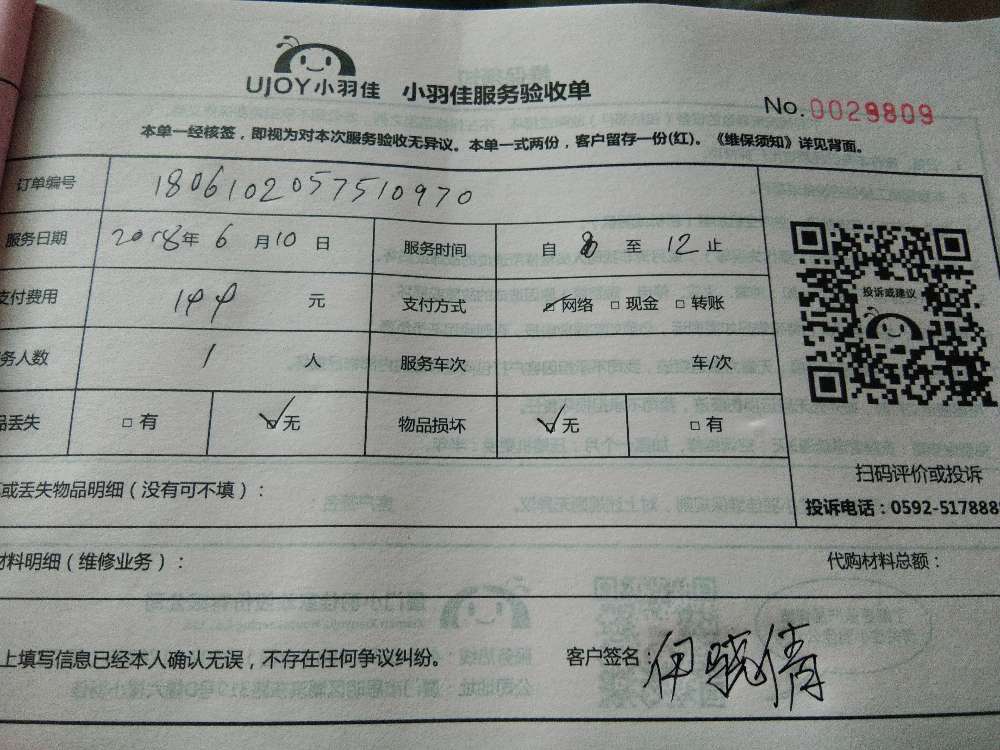 UJOY小羽佳 小羽佳服务验收单
No.0029809
本单一经核签，即视为对本次服务验收无异议。本单一式两份，客户留存一份(红)。《维保须知》详见背面。
订单编号 1806102057510970
服务日期 2018年 6 月 10 日 服务时间 自 8 至 12 止
支付费用 144 元 支付方式 ☑网络 □现金 □转账
务人数 1 人 服务车次 车/次
品丢失 □有 ☑无 物品损坏 ☑无 □有
投诉或建议
扫码评价或投诉
投诉电话：0592-5178888
或丢失物品明细（没有可不填）：
材料明细（维修业务）： 代购材料总额：
上填写信息已经本人确认无误，不存在任何争议纠纷。 客户签名：伊晓倩